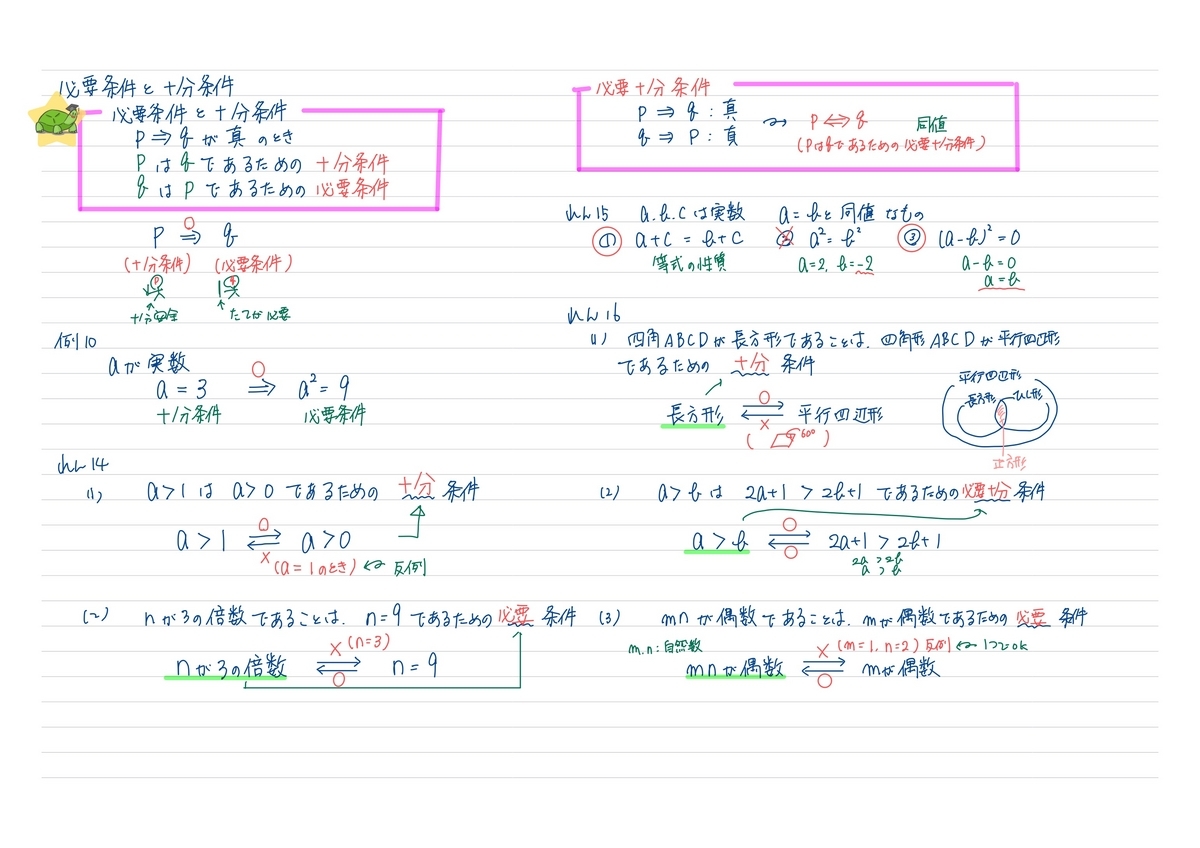 必要条件と十分条件
必要条件と十分条件
P ⇒ q が 真 のとき
P は q であるための 十分条件
q は P であるための 必要条件
P ⇒ q
(十分条件) (必要条件)
十分安全 たてが必要
例10
aが実数
a = 3 ⇒ a² = 9
十分条件 必要条件
れん14
(1) a>1 は a>0 であるための 十分 条件
a>1 ⇄ a>0
× (a=1のとき) ← 反例
(2) nが3の倍数であることは、n=9であるための 必要 条件
× (n=3)
nが3の倍数 ⇄ n=9
必要十分条件
P ⇒ q : 真
q ⇒ P : 真
P ⇔ q 同値
(Pはqであるための必要十分条件)
れん15 a.b.cは実数 a=bと同値なもの
① a+c = b+c ② a²=b² ③ (a-b)²=0
等式の性質 a=2, b=-2 a-b=0
a=b
れん16
(1) 四角ABCDが長方形であることは、四角形ABCDが平行四辺形
であるための 十分 条件
長方形 ⇄ 平行四辺形
× ( 60° )
平行四辺形
長方形 ひし形
正方形
(2) a>b は 2a+1 > 2b+1 であるための 必要十分 条件
a > b ⇄ 2a+1 > 2b+1
2a > 2b
a > b
(3) mnが偶数であることは、mが偶数であるための 必要 条件
m.n:自然数 × (m=1, n=2) 反例 ← 1つでOK
mnが偶数 ⇄ mが偶数